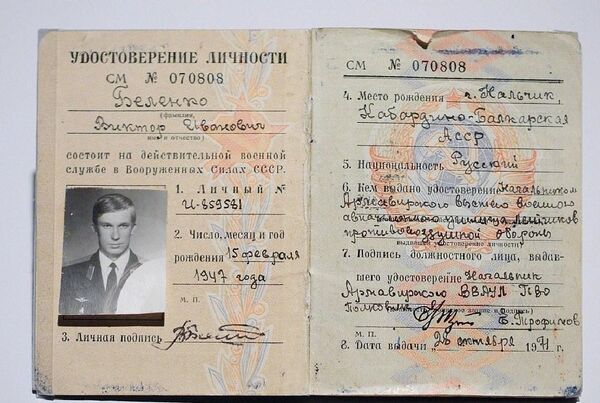 УДОСТОВЕРЕНИЕ ЛИЧНОСТИ
СМ № 070808
Беленко
(фамилия,
Виктор Иванович
имя и отчество)
состоит на действительной военной
службе в Вооруженных Силах СССР.
1. Личный №
И-859581
2. Число, месяц и год
рождения 15 февраля
1947 года
М. П.
3. Личная подпись
СМ № 070808
4. Место рождения г. Нальчик,
Кабардино-Балкарская
АССР
5. Национальность Русский
6. Кем выдано удостоверение Начальником
Армавирского высшего военного
авиационного училища летчиков
противовоздушной обороны
7. Подпись должностного лица, выдав-
шего удостоверение Начальник
Армавирского ВВАУЛ ПВО
Полковник
Е. Трофимов
М. П.
8. Дата выдачи „26 октября 1971 г.